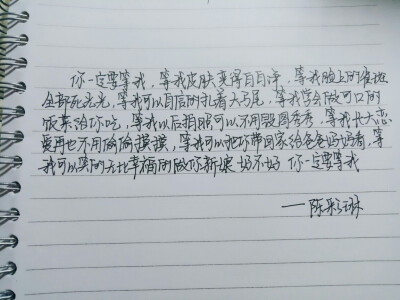 你一定要等我，等我皮肤变得白白净，等我脸上的痘痘
全部死光光，等我可以自信的扎着大马尾，等我学会做可口的
饭菜给你吃，等我以后拍照可以不用美图秀秀，等我长大恋
爱再也不用偷偷摸摸，等我可以把你带回家给爸爸妈妈看，等
我可以笑的无比幸福的做你新娘 好不好 你一定要等我
——陈彩琳